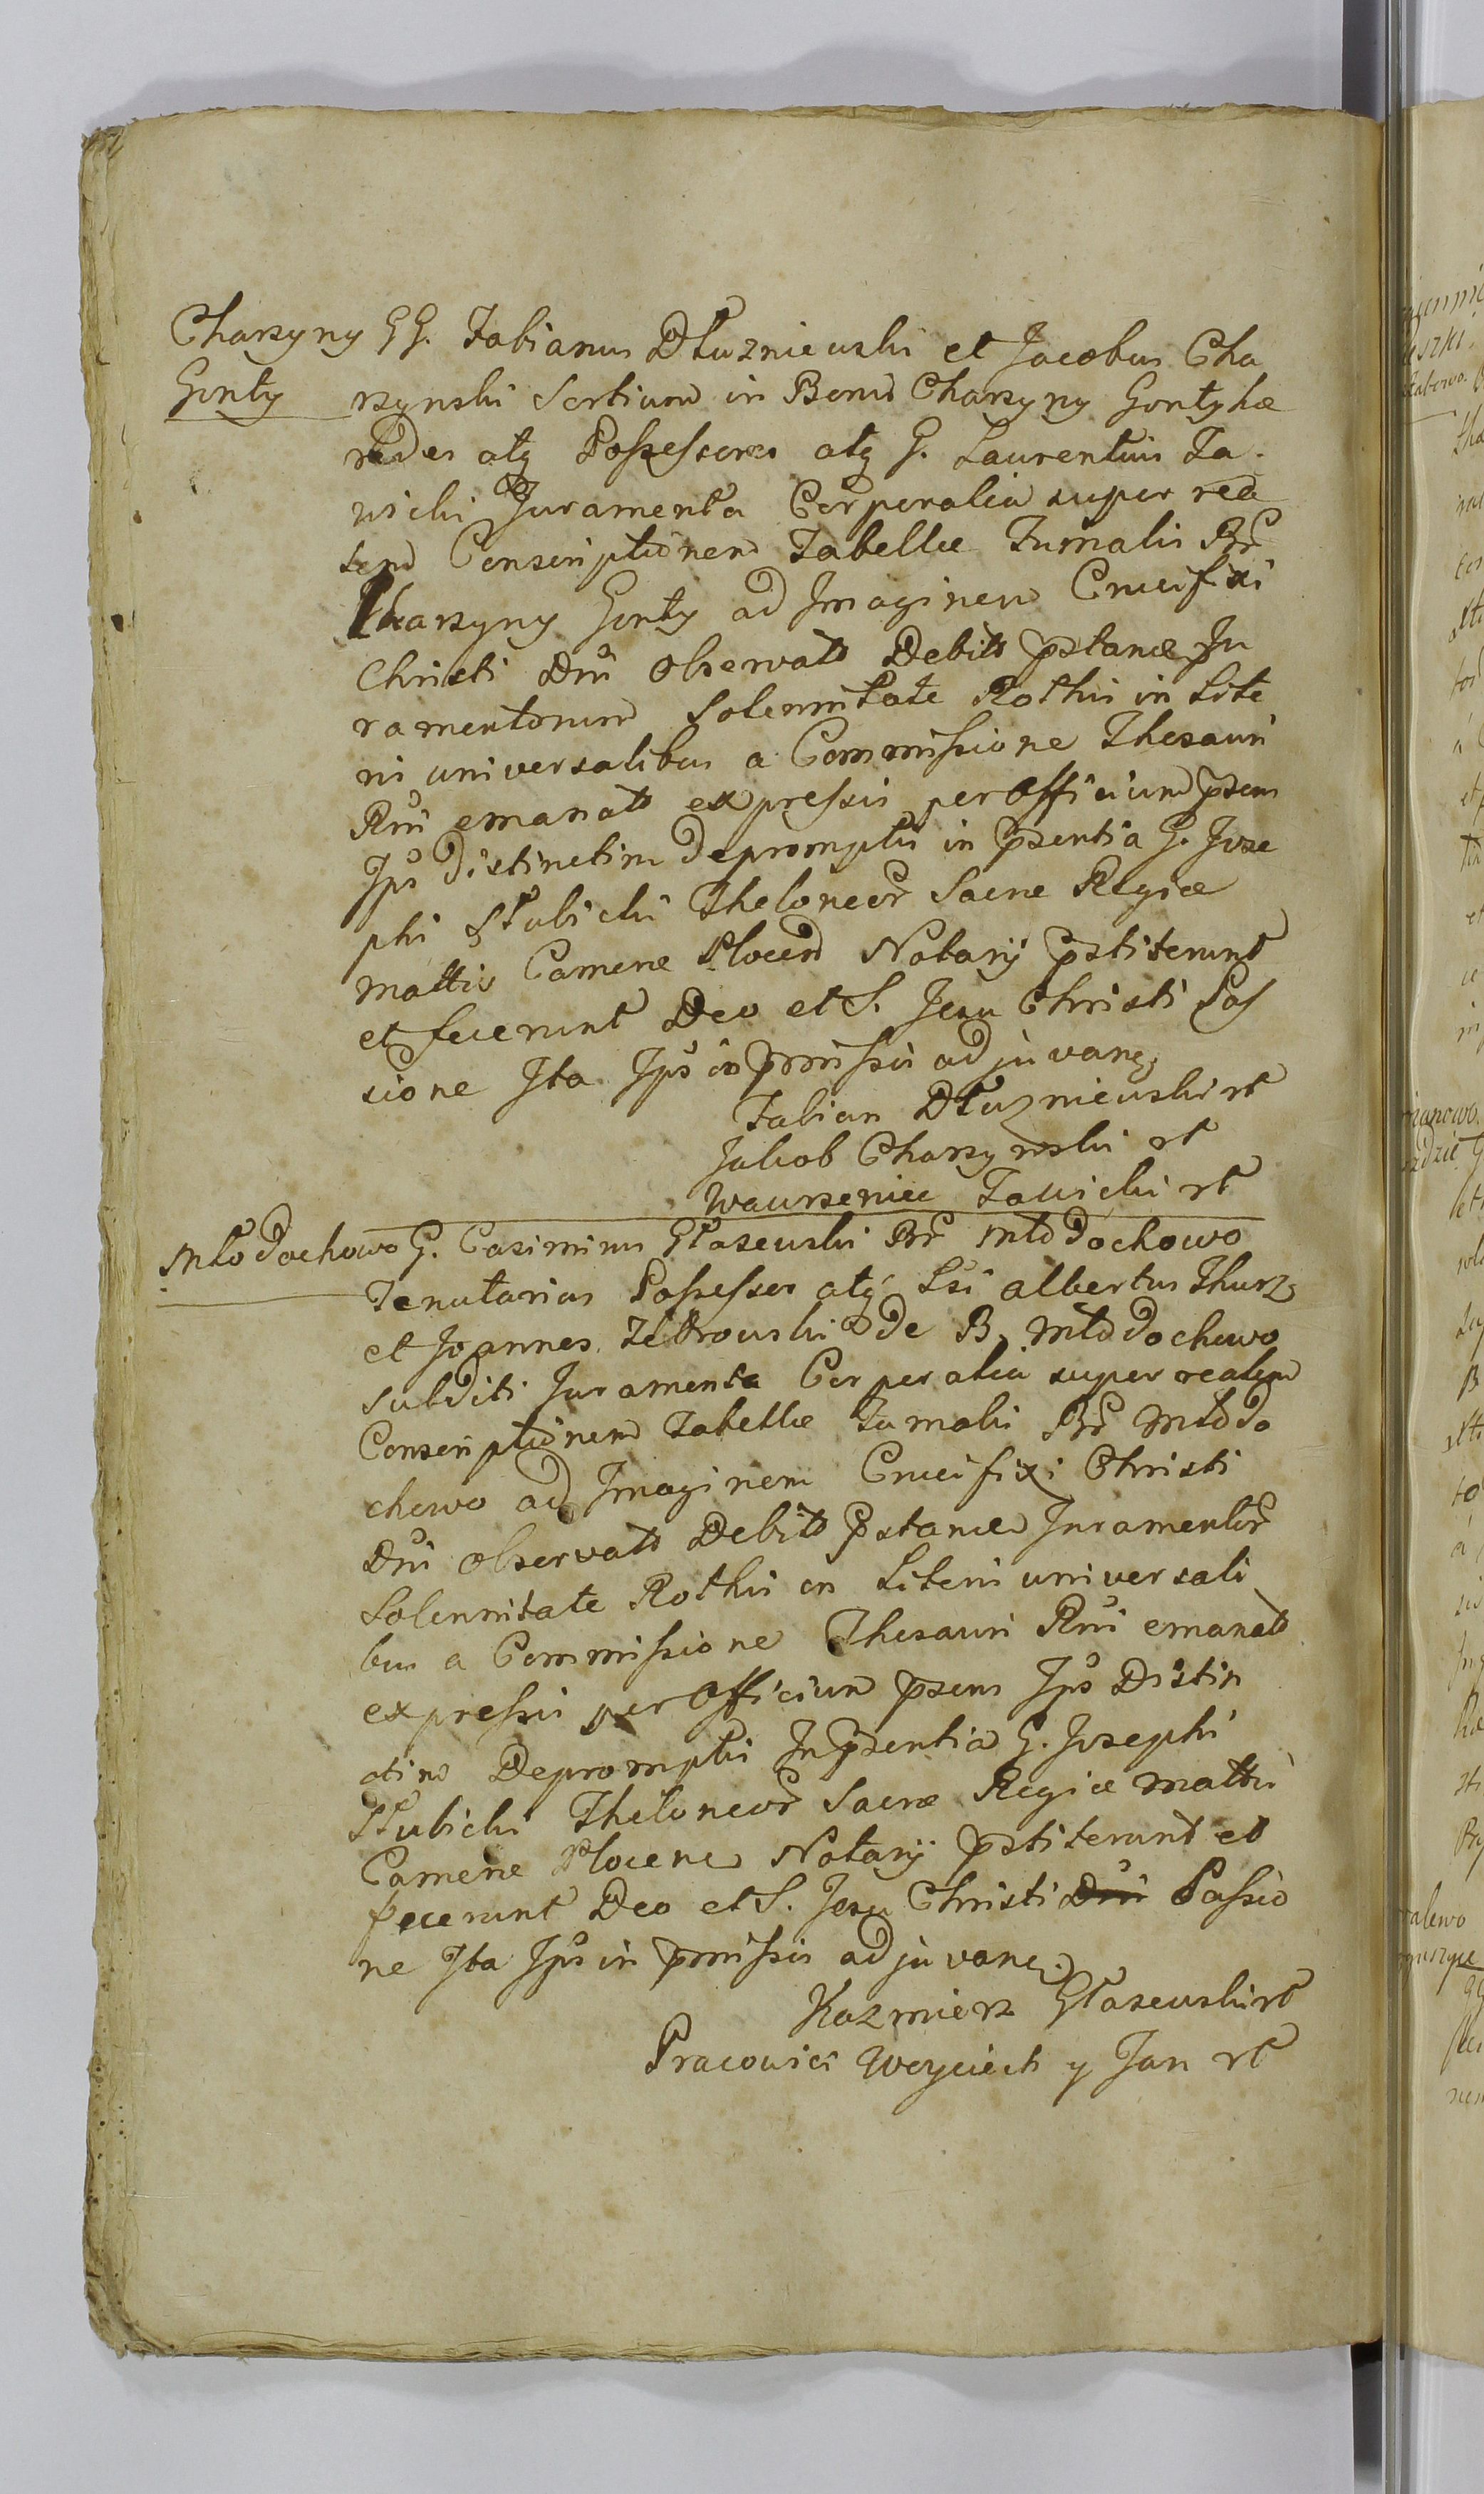 Charzyny GG. Fabianus Dłuzniewski et Jacobus Cha
Gonty rzynski Sortium in Bonis Charzyny Gonty hæ
redes atq Possessores atq G. Laurentius Ta
wicki Juramenta Corporalia super rea
lem Conscriptionem Tabellæ Fumalis Br
Charzyny Gonty ad Imaginem Crucifixi
Christi Dni observata Debita pstandæ Ju
ramentorum Solennitate Rothis in Lite
ris universalibus a Commissione Thesauri
Rni emanatis expressis per Officium psens
Ips distinctim depromptis in psentia G. Jose
phi Słubicki Theloneor Sacræ Regiæ
Mattis Cameræ Plocen Notary pstiterunt
et fecerunt Deo et S. Jesu Christi Pas
sione Ita Ips in pmissis adjuvane
Fabian Dłuzniewski rt
Jakob Charzynski rt
Wawrzeniec Tawicki rt
Młodochowo G. Casimirus Głazewski Br Młodochowo
Tenutarius Possessor atq Lsi Albertus Thurz
et Joannes de B. Młodochowo
subditi Juramenta Corporalia super realem
Conscriptionem Tabellæ Fumalis Br Młodo
chowo ad Imaginem Crucifixi Christi
Dni observata Debita pstandæ Juramentor
Solennitate Rothis in Literis universali
bus a Commissione Thesauri Rni emanatis
expressis per Officium psens Ips Distin
ctim Depromptis In psentia G. Josephi
Słubicki Theloneor Sacræ Regiæ Mattis
Cameræ Plocen Notary pstiterunt et
fecerunt Deo et S. Jesu Christi Dni Passio
ne Ita Ips in pmissis adjuvane
Kazmierz Głazewski rt
Pracowici Woyciech y Jan rt